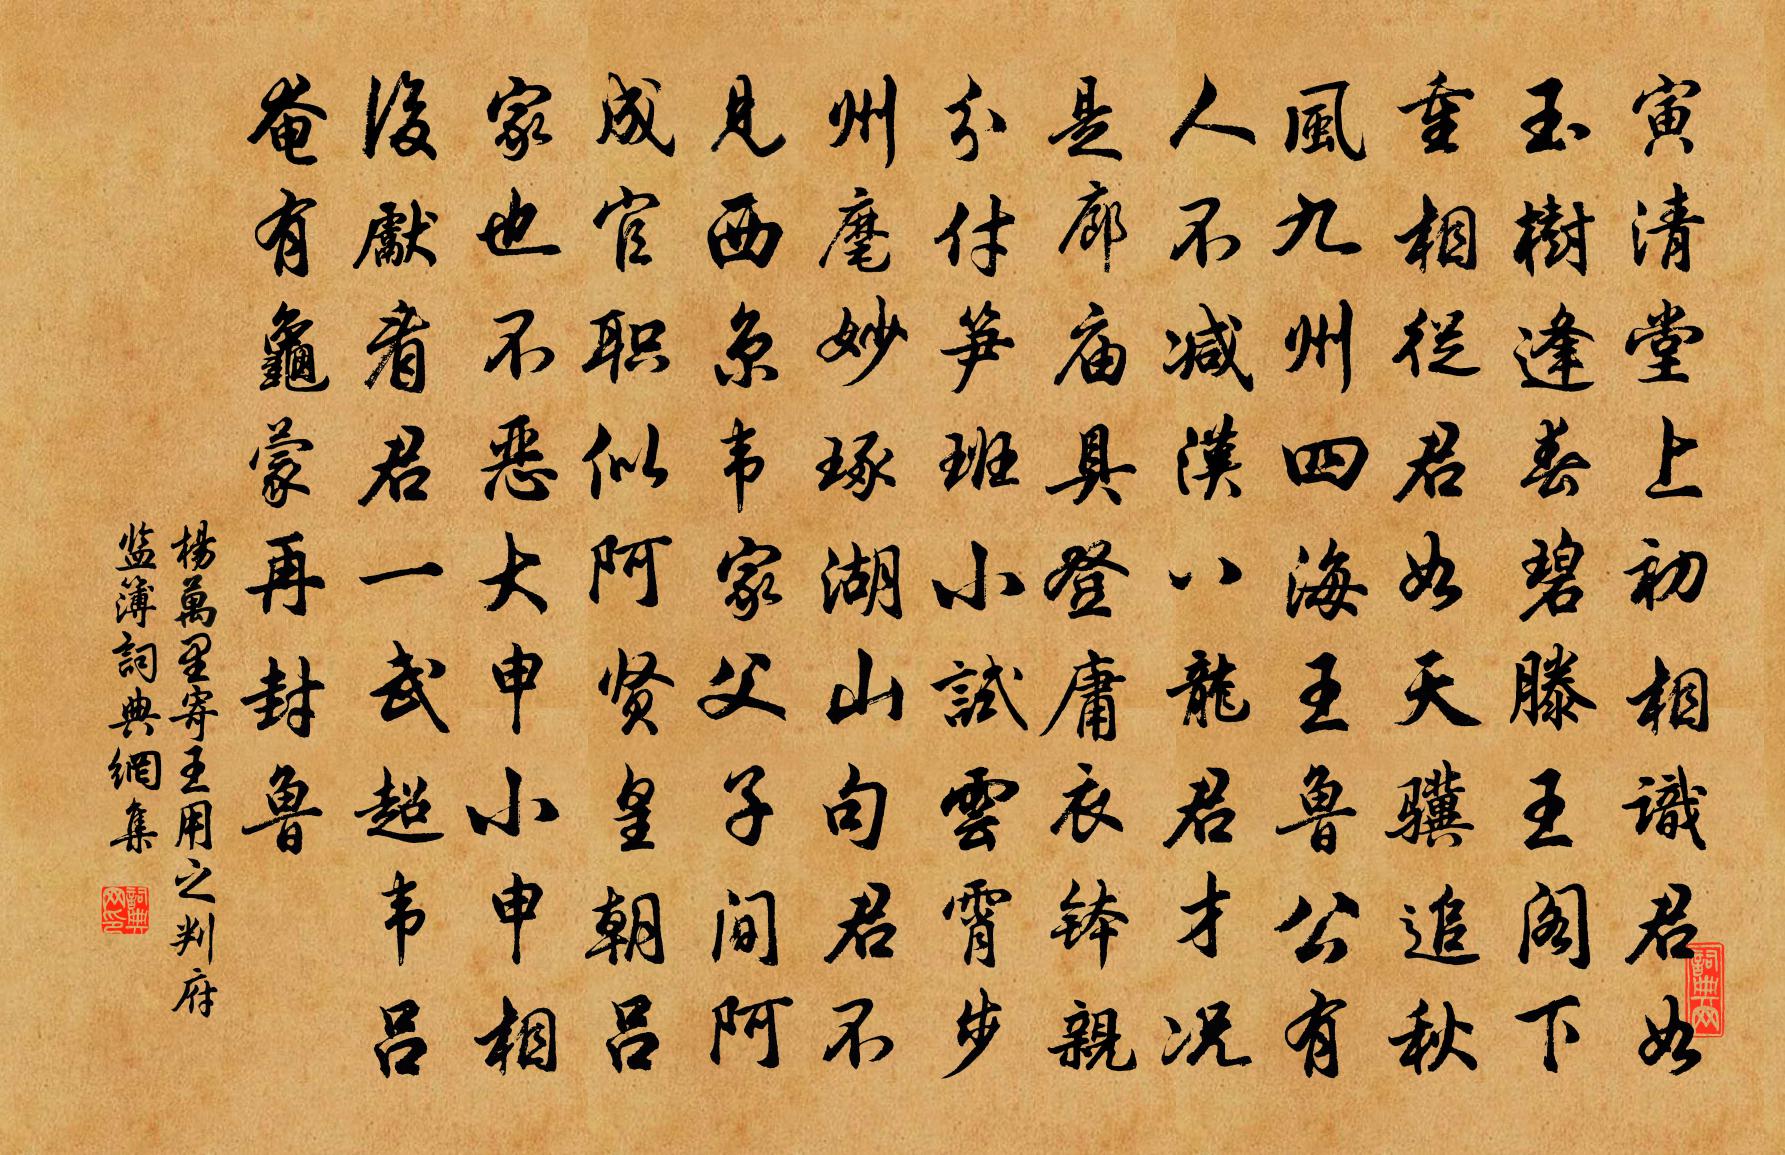 寅清堂上初相識君如
玉樹逢春碧滕王阁下
重相従君如天骥追秋
風九州四海王魯公有
人不减漢八龍君才况
是廊庙具登庸衣钵親
分付笋班小試雲霄步
州麾妙琢湖山句君不
見西京韦家父子间阿
成官职似阿贤皇朝吕
家也不恶大申小申相
後獻看君一武超韦吕
奄有龜蒙再封魯
楊萬里寄王用之判府
监簿詞典網集
詞典网
詞典网印